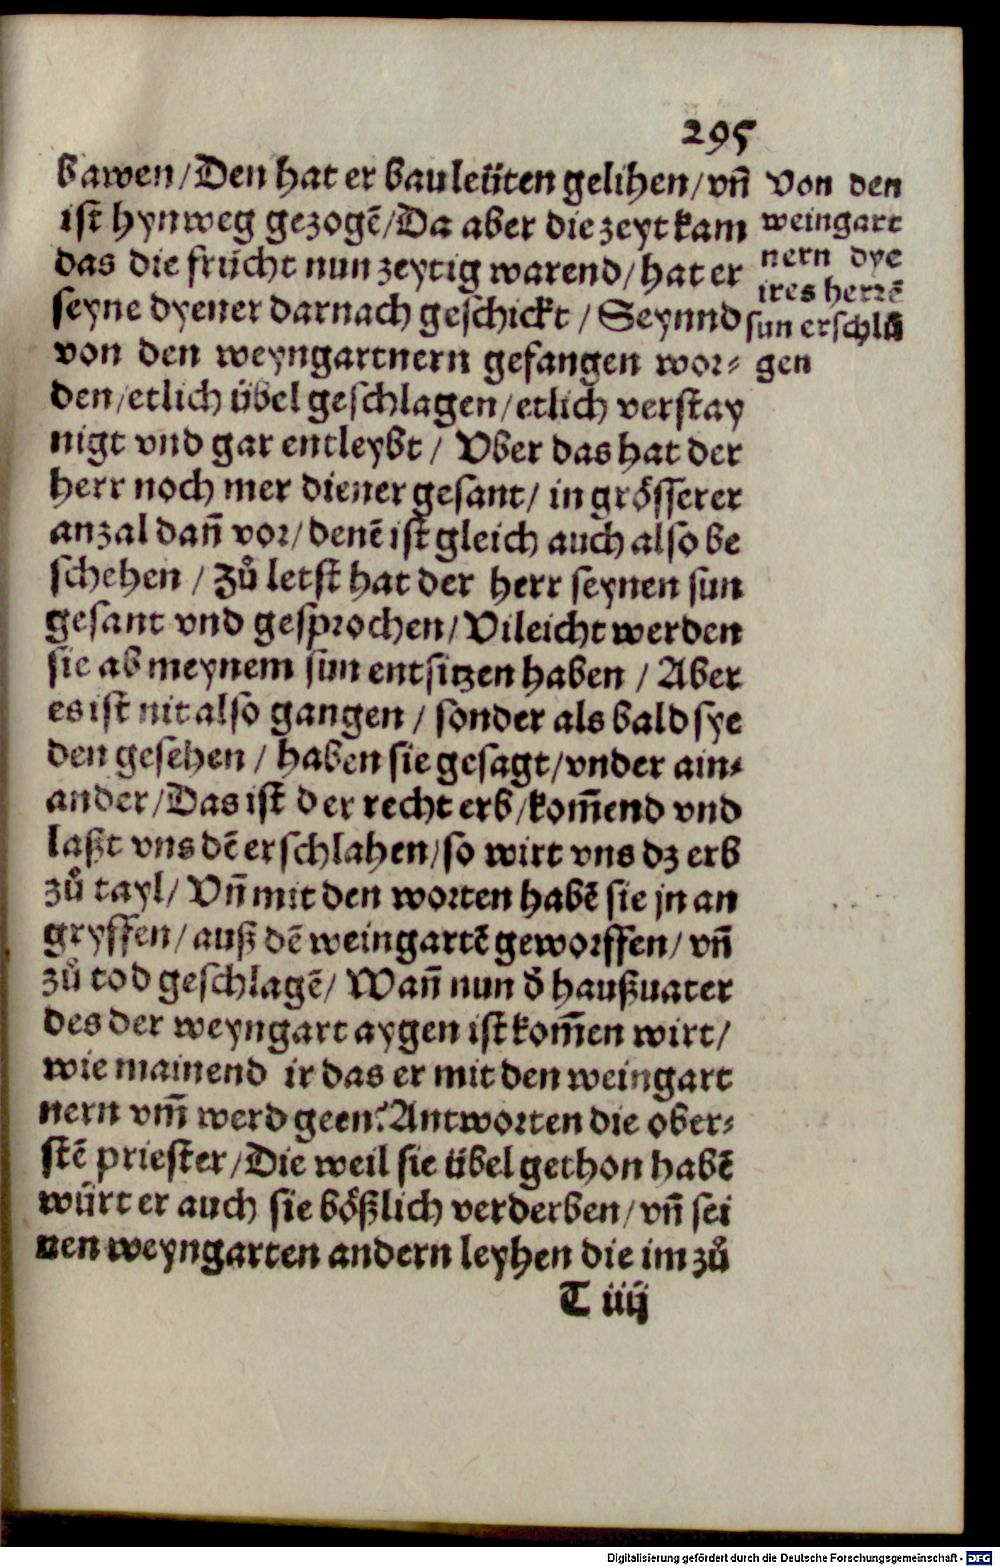 295
bawen/Den hat er bauleüten gelihen/vñ
ist hynweg gezogẽ/Da aber die zeyt kam
das die frücht nun zeytig warend/hat er
seyne dyener darnach geschickt/Seynnd
von den weyngartnern gefangen wor⸗
den/etlich übel geschlagen/etlich verstay
nigt vnd gar entleybt/Vber das hat der
herr noch mer diener gesant/in grösserer
anzal dañ vor/denẽ ist gleich auch also be
schehen/Zů letst hat der herr seynen sun
gesant vnd gesprochen/Vileicht werden
sie ab meynem sun entsitzen haben/Aber
es ist nit also gangen/sonder als bald sye
den gesehen/haben sie gesagt/vnder ain⸗
ander/Das ist der recht erb/kom̃end vnd
laßt vns dẽ erschlahen/so wirt vns dz erb
zů tayl/Vñ mit den worten habẽ sie jn an
gryffen/auß dẽ weingartẽ geworffen/vñ
zů tod geschlagẽ/Wañ nun d̕ haußuater
des der weyngart aygen ist kom̃en wirt/
wie mainend ir das er mit den weingart
nern vm̃ werd geen? Antworten die ober⸗
stẽ priester/Die weil sie übel gethon habẽ
würt er auch sie bößlich verderben/vñ sei
nen weyngarten andern leyhen die im zů
T iiij
Von den
weingart
nern dye
ires herrẽ
sun erschlů
gen
Digitalisierung gefördert durch die Deutsche Forschungsgemeinschaft - DFG